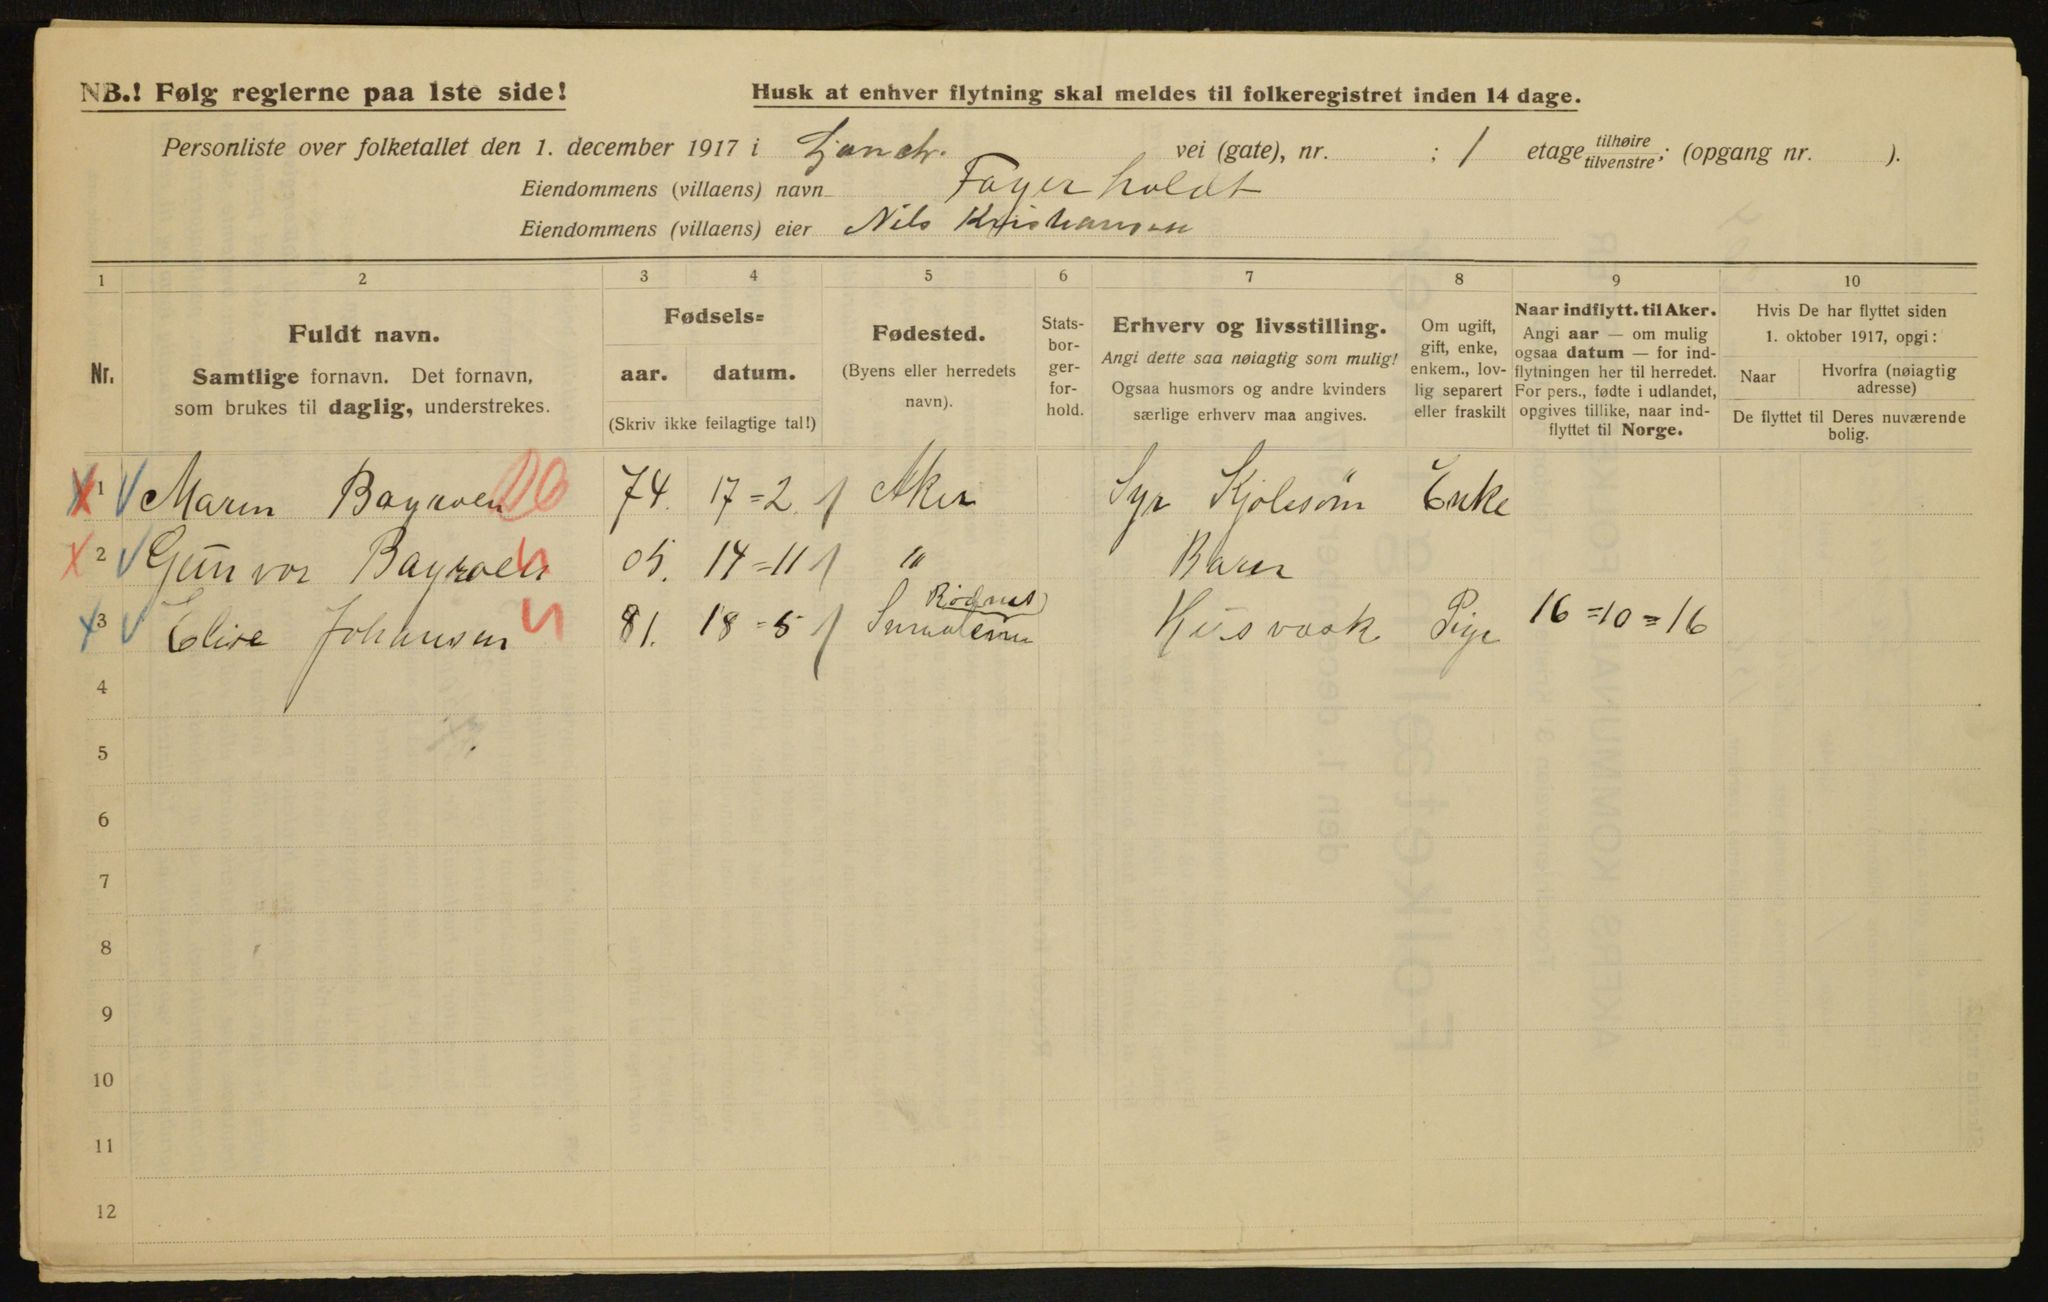 NB.! Følg reglerne paa 1ste side!
Husk at enhver flytning skal meldes til folkeregistret inden 14 dage.
Personliste over folketallet den 1. december 1917 i vei (gate), nr. ; 1 etage tilhøire tilvenstre; (opgang nr. ).
Eiendommens (villaens) navn Fayerholdt
Eiendommens (villaens) eier Nils Kristiansen
1 2 3 4 5 6 7 8 9 10
Nr.
Fuldt navn.
Samtlige fornavn. Det fornavn,
som brukes til daglig, understrekes.
Fødsels=
aar. datum.
(Skriv ikke feilagtige tal!)
Fødested.
(Byens eller herredets
navn).
Stats-
bor-
ger-
for-
hold.
Erhverv og livsstilling.
Angi dette saa nøiagtig som mulig!
Ogsaa husmors og andre kvinders
særlige erhverv maa angives.
Om ugift,
gift, enke,
enkem., lov-
lig separert
eller fraskilt
Naar indflytt. til Aker.
Angi aar — om mulig
ogsaa datum — for ind-
flytningen her til herredet.
For pers., fødte i udlandet,
opgives tillike, naar ind-
flyttet til Norge.
Hvis De har flyttet siden
1. oktober 1917, opgi:
Naar
Hvorfra (nøiagtig
adresse)
De flyttet til Deres nuværende
bolig.
1 Maren 74. 17=2 Aker Syr Enke
2 Gunvor 05. 14=11 " Baren
3 Elise Johansen 81. 18=5 Husvask Pige 16=10=16
4
5
6
7
8
9
10
11
12